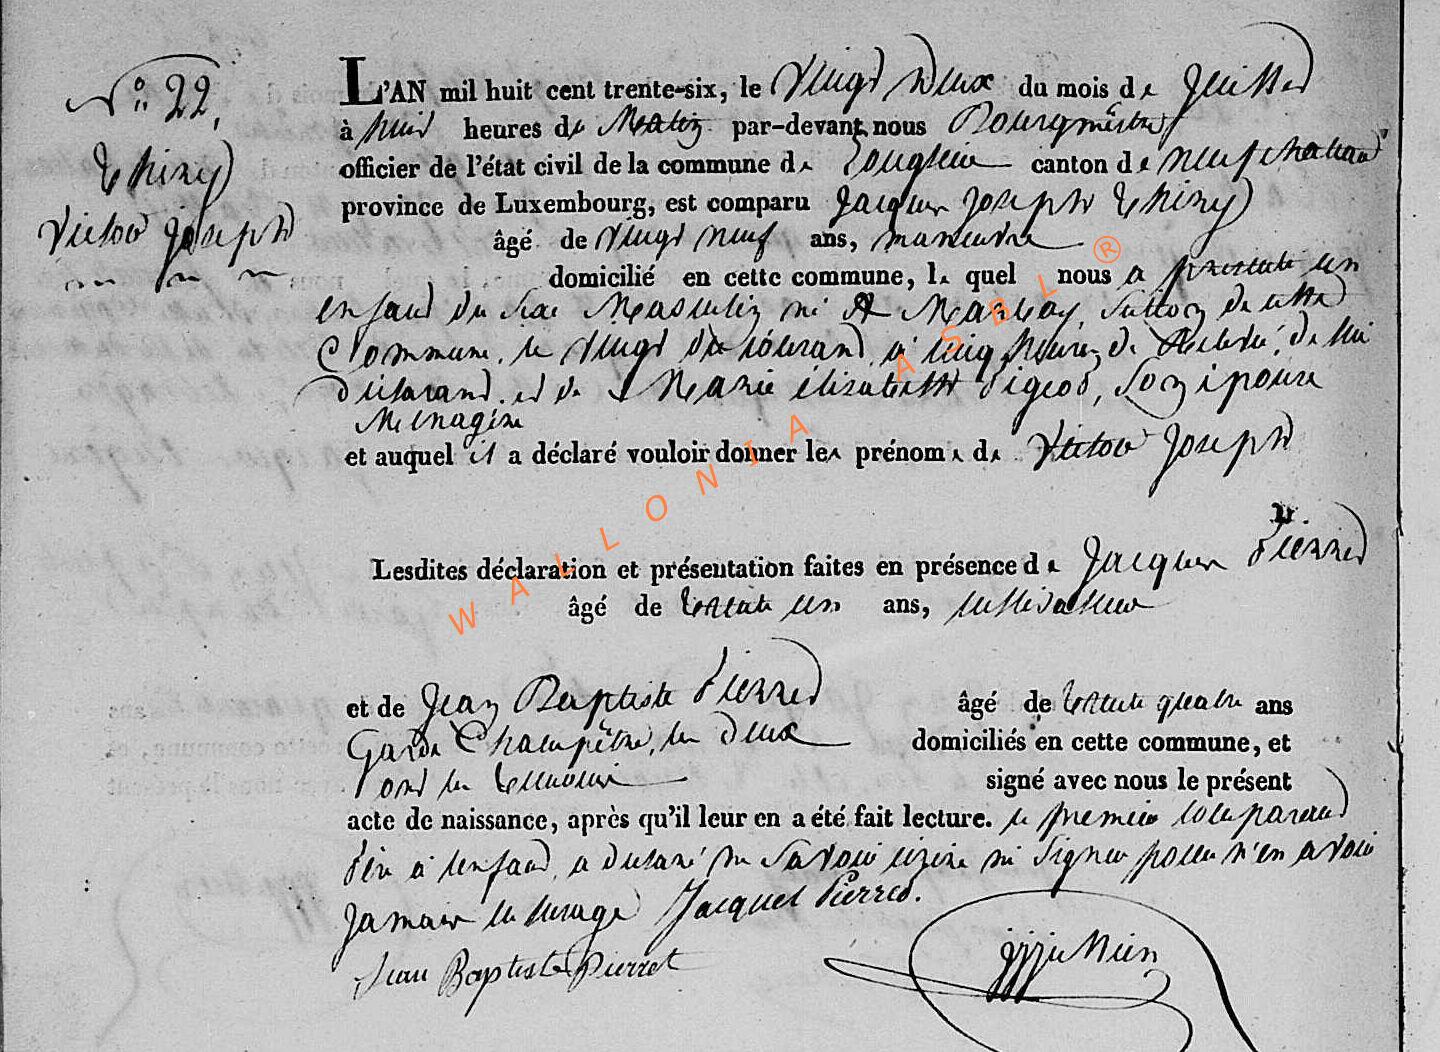 N° 22.
Thiry
Victor Joseph
L'AN mil huit cent trente-six, le vingt Deux du mois de Juillet
à huit heures du Matin par-devant nous Bourgmestre
officier de l'état civil de la commune de Longlier canton de neufchateau
province de Luxembourg, est comparu Jacques Joseph Thiry
âgé de vingt neuf ans, maneuvre
domicilié en cette commune, le quel nous a presenté un
enfant du sexe Masculin né à Massoy, section de cette
Commune, le vingt du courant, à cinq heures de Relevée, de lui
déclarant, et de Marie élizabeth Pigeot, son épouse
Menagère
et auquel il a déclaré vouloir donner les prénoms de Victor Joseph
Lesdites déclaration et présentation faites en présence de Jacques Pierret
âgé de trente un ans, cultivateur
et de Jean Baptiste Pierret âgé de trente quatre ans
Garde Champêtre, les deux domiciliés en cette commune, et
ont les temoins signé avec nous le présent
acte de naissance, après qu'il leur en a été fait lecture. le premier comparant
père à l'enfant, a declaré ne savoir écrire ni signer pour n'en avoir
jamais eu l'usage Jacques Pierret.
Jean Baptiste Pierret
WALLONIA ASBL ®